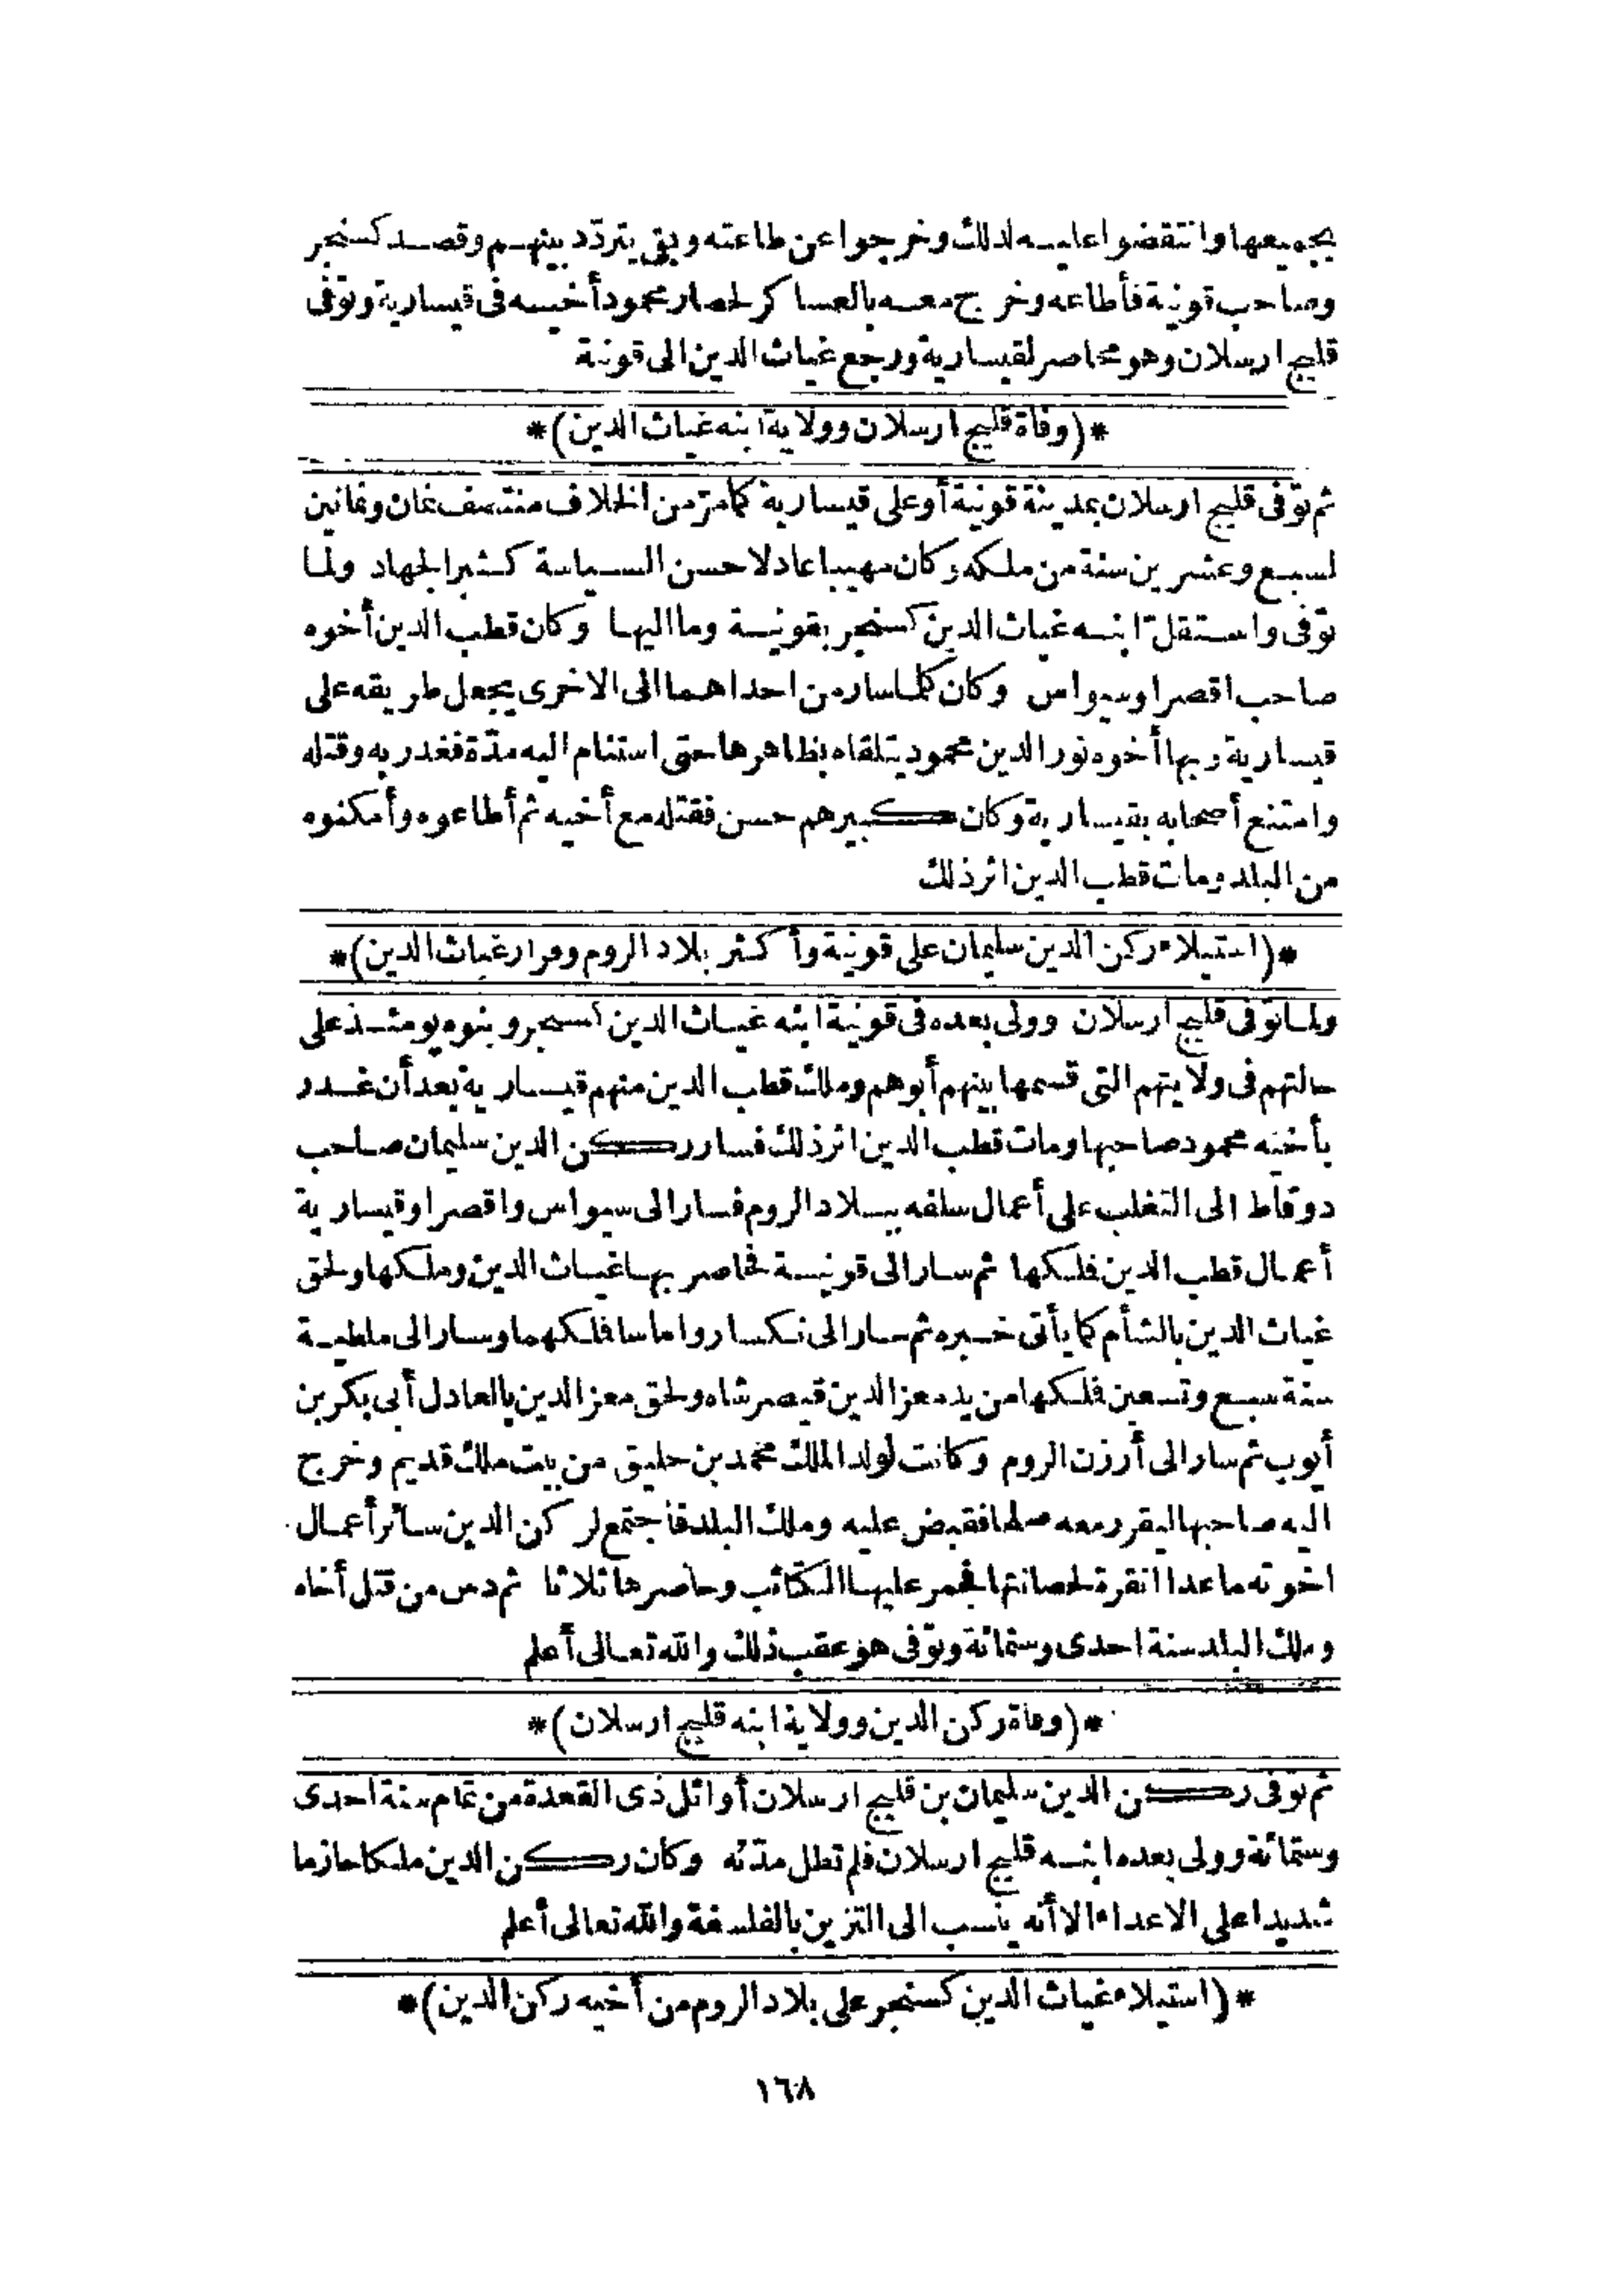 بجميعها وانتقضوا عليه لذلك وخرجوا عن طاعته وبقى يتردّد بينهم وقصد كسنجر
وصاحب قونية فأطاعه وخرج معه بالعساكر لحصار محمود أخيه فى قيسارية وتوفى
قليج ارسلان وهو محاصر لقيسارية ورجع غياث الدين الى قونية
*(وفاة قليج ارسلان وولاية ابنه غياث الدين)*
ثم توفى قليج ارسلان بمدينة قونية أو على قيسارية كما مرّ من الخلاف منتصف ثمان وثمانين
لسبع وعشرين سنة من ملكه وكان مهيبا عادلا حسن السياسة كثير الجهاد ولما
توفى واستقلّ ابنه غياث الدين كسنجر بقونية وما اليها وكان قطب الدين أخوه
صاحب اقصرا وسيواس وكان كلما سار من احداهما الى الاخرى يجعل طريقه على
قيسارية وبها أخوه نور الدين محمود يتلقاه بظاهرها حتى استنام اليه مدّة فغدر به وقتله
وامتنع أصحابه بقيسارية وكان كبيرهم حسن فقتله مع أخيه ثم أطاعوه وأمكنوه
من البلد ومات قطب الدين اثر ذلك
*(استيلاء ركن الدين سليمان على قونية وأكثر بلاد الروم وفرار غياث الدين)*
ولما توفى قليج ارسلان وولى بعده فى قونية ابنه غياث الدين كسنجر وبنوه يومئذ على
حالتهم فى ولايتهم التى قسمها بينهم أبوهم وملك قطب الدين منهم قيسارية بعد أن غدر
بأخيه محمود صاحبها ومات قطب الدين اثر ذلك فسار ركن الدين سليمان صاحب
دوقاط الى التغلب على أعمال سلفه ببلاد الروم فسار الى سيواس واقصرا وقيسارية
أعمال قطب الدين فملكها ثم سار الى قونية فحاصر بها غياث الدين وملكها ولحق
غياث الدين بالشأم كما يأتى خبره ثم سار الى نكسار واماسا فملكهما وسار الى ملطية
سنة سبع وتسعين فملكها من يد معز الدين قيصر شاه ولحق معز الدين بالعادل أبى بكر بن
أيوب ثم سار الى أرزن الروم وكانت لولد الملك محمد بن حليق من بيت ملك قديم وخرج
اليه صاحبها ليقرر معه صلحا فقبض عليه وملك البلد فاجتمع لركن الدين سائر أعمال
اخوته ما عدا انقرة لحصانتها فجمر عليها الكتائب وحاصرها ثلاثا ثم دس من قتل أخاه
وملك البلد سنة احدى وستمائة وتوفى هو عقب ذلك والله تعالى أعلم
*(وفاة ركن الدين وولاية ابنه قليج ارسلان)*
ثم توفى ركن الدين سليمان بن قليج ارسلان أوائل ذى القعدة من تمام سنة احدى
وستمائة وولى بعده ابنه قليج ارسلان فلم تطل مدّته وكان ركن الدين ملكا حازما
شديدا على الاعداء الا أنه ينسب الى التزين بالفلسفة والله تعالى أعلم
*(استيلاء غياث الدين كسنجر على بلاد الروم من أخيه ركن الدين)*
١٦٨